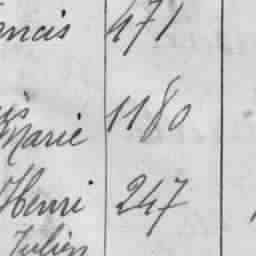 ancis 471
Marie 1180
Henri 247
Julien